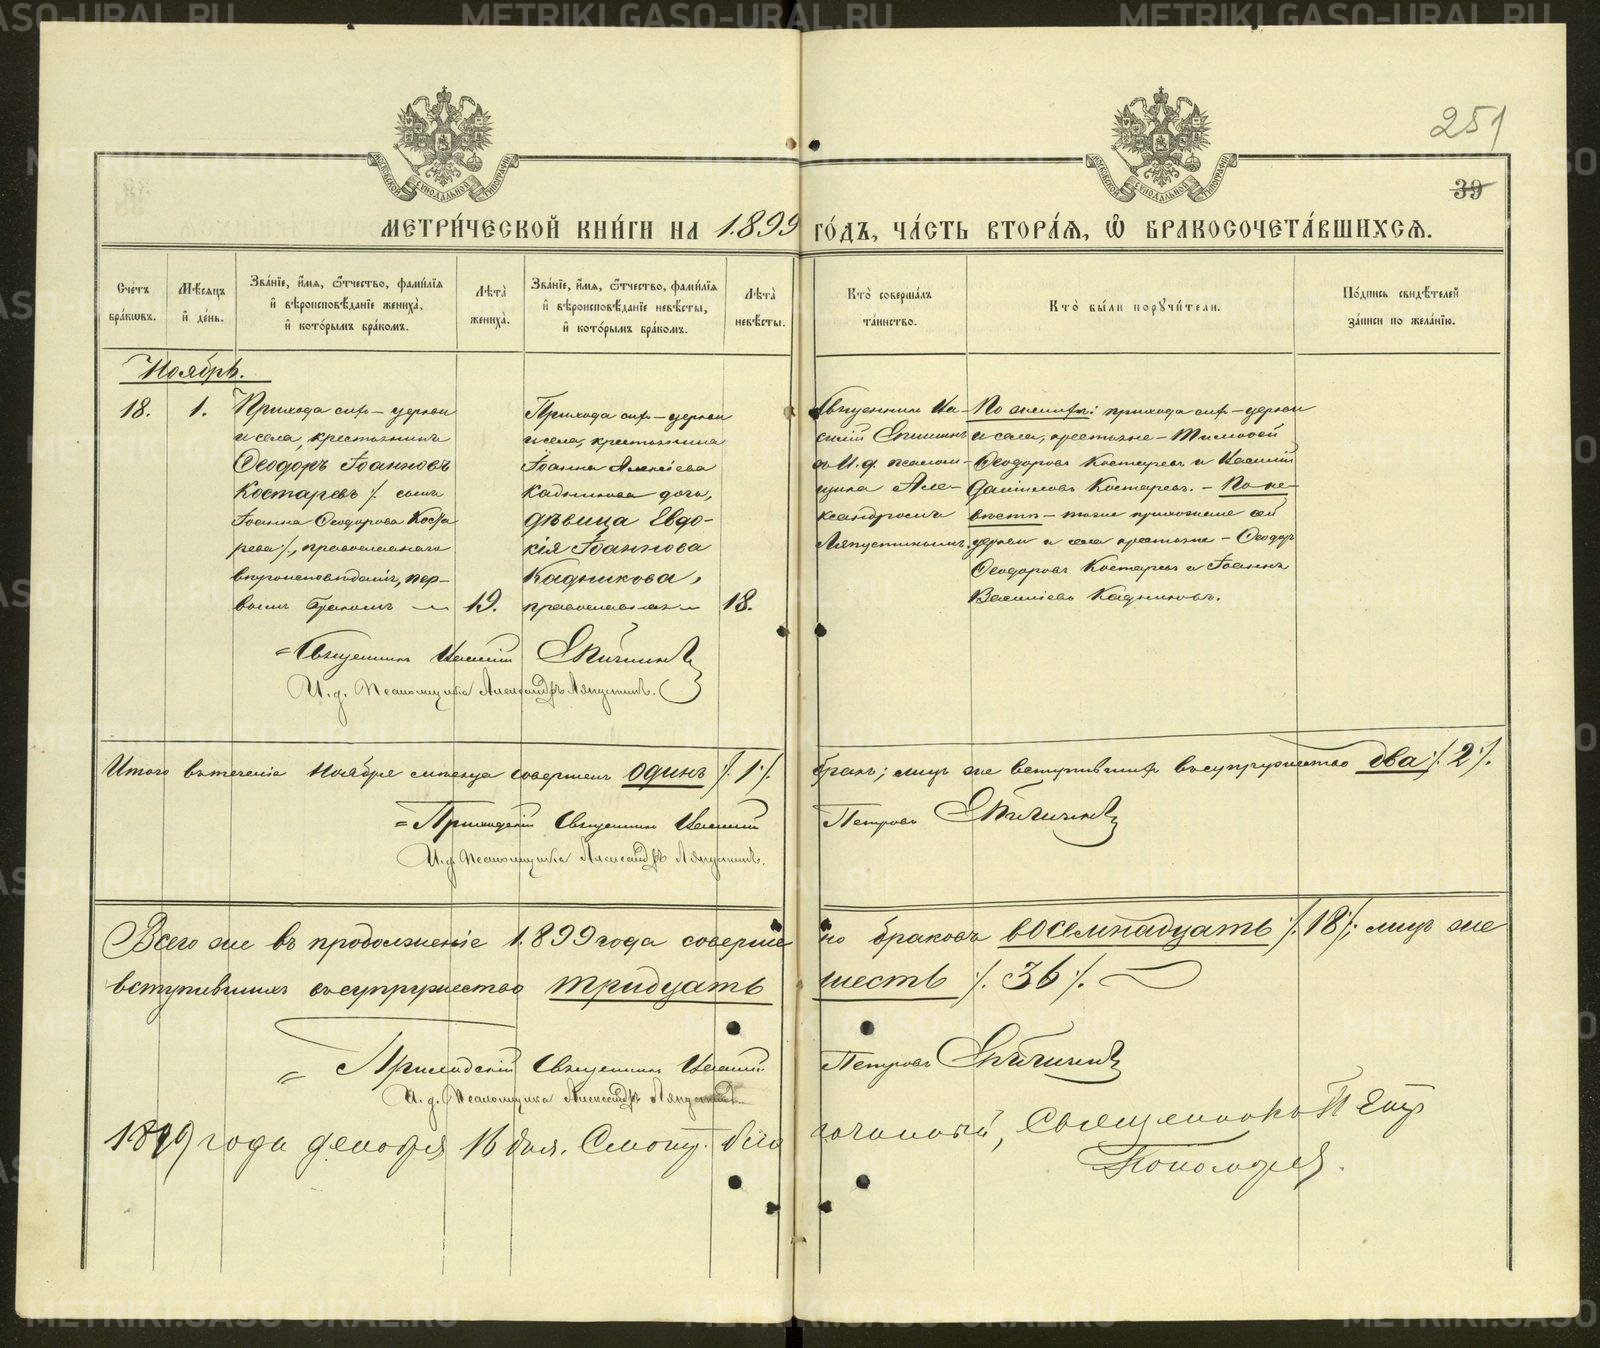 251
39
МЕТРИ́ЧЕСКОЙ КНИ́ГИ НА 1899 ГО́ДЪ, ЧА́СТЬ ВТОРА́Ѧ, Ѽ БРАКОСОЧЕТА́ВШИХСѦ.
Сче́тъ бра́кѡвъ.
Мѣ́сѧцъ и҆ де́нь.
Зва́нїе, и҆́мѧ, ѻ҆́тчество, фами́лїѧ и҆ вѣроисповѣ́данїе жениха̀, и҆ кото́рымъ бра́комъ.
Лѣта̀ жениха̀.
Зва́нїе, и҆́мѧ, ѻ҆́тчество, фами́лїѧ и҆ вѣроисповѣ́данїе невѣ́сты, и҆ кото́рымъ бра́комъ.
Лѣта̀ невѣ́сты.
Кто̀ соверша́лъ та́инство.
Кто̀ бы́ли порꙋчи́тели.
По́дпись свидѣ́телей за́писи по жела́нїю.
Ноябрь.
18.
1.
Прихода сихъ – церкви
и села, крестьянинъ
Ѳеодоръ Іоанновъ
Костаревъ /. сынъ
Іоанна Ѳеодорова Коста
рева /., православнаго
вѣроисповѣданія, пер-
вымъ бракомъ
19.
Прихода сихъ – церкви
и села, крестьянина
Іоанна Алексіева
Кадникова дочь,
дѣвица Евдо-
кія Іоаннова
Кадникова,
православная
18.
Священникъ Ва-
силій Спицинъ
съ И. д. псалом-
щика Але-
ксандромъ
Ляпустинымъ.
По женихѣ: прихода сихъ – церкви
и села, крестьяне – Тимоѳей
Ѳеодоровъ Костаревъ и Василій
Даніиловъ Костаревъ. – По не-
вѣстѣ – тоже прихожане сей
церкви и села крестьяне – Ѳеодоръ
Ѳеодоровъ Костаревъ и Іоаннъ
Василіевъ Кадниковъ.
Священникъ Василій Спицинъ
И. д. Псаломщика Александръ Ляпустинъ.
Итого въ теченіе Ноября мѣсяца совершенъ одинъ /. 1 /. бракъ; лицъ же вступившихъ въ супружество два /. 2 /.
Приходскій Священникъ Василій Петровъ Спицинъ
И. д. Псаломщика Александръ Ляпустинъ.
Всего же въ продолженіе 1899 года соверше но браковъ восемнадцать /. 18 /.; лицъ же
вступившихъ въ супружество тридцать шесть /. 36 /.
Приходскій Священникъ Василій Петровъ Спицинъ
И. д. Псаломщика Александръ Ляпустинъ.
1899 года декабря 16 дня. Смотр. благочинный, Священникъ Петръ
Пономаревъ.
METRIKI.GASO-URAL.RU